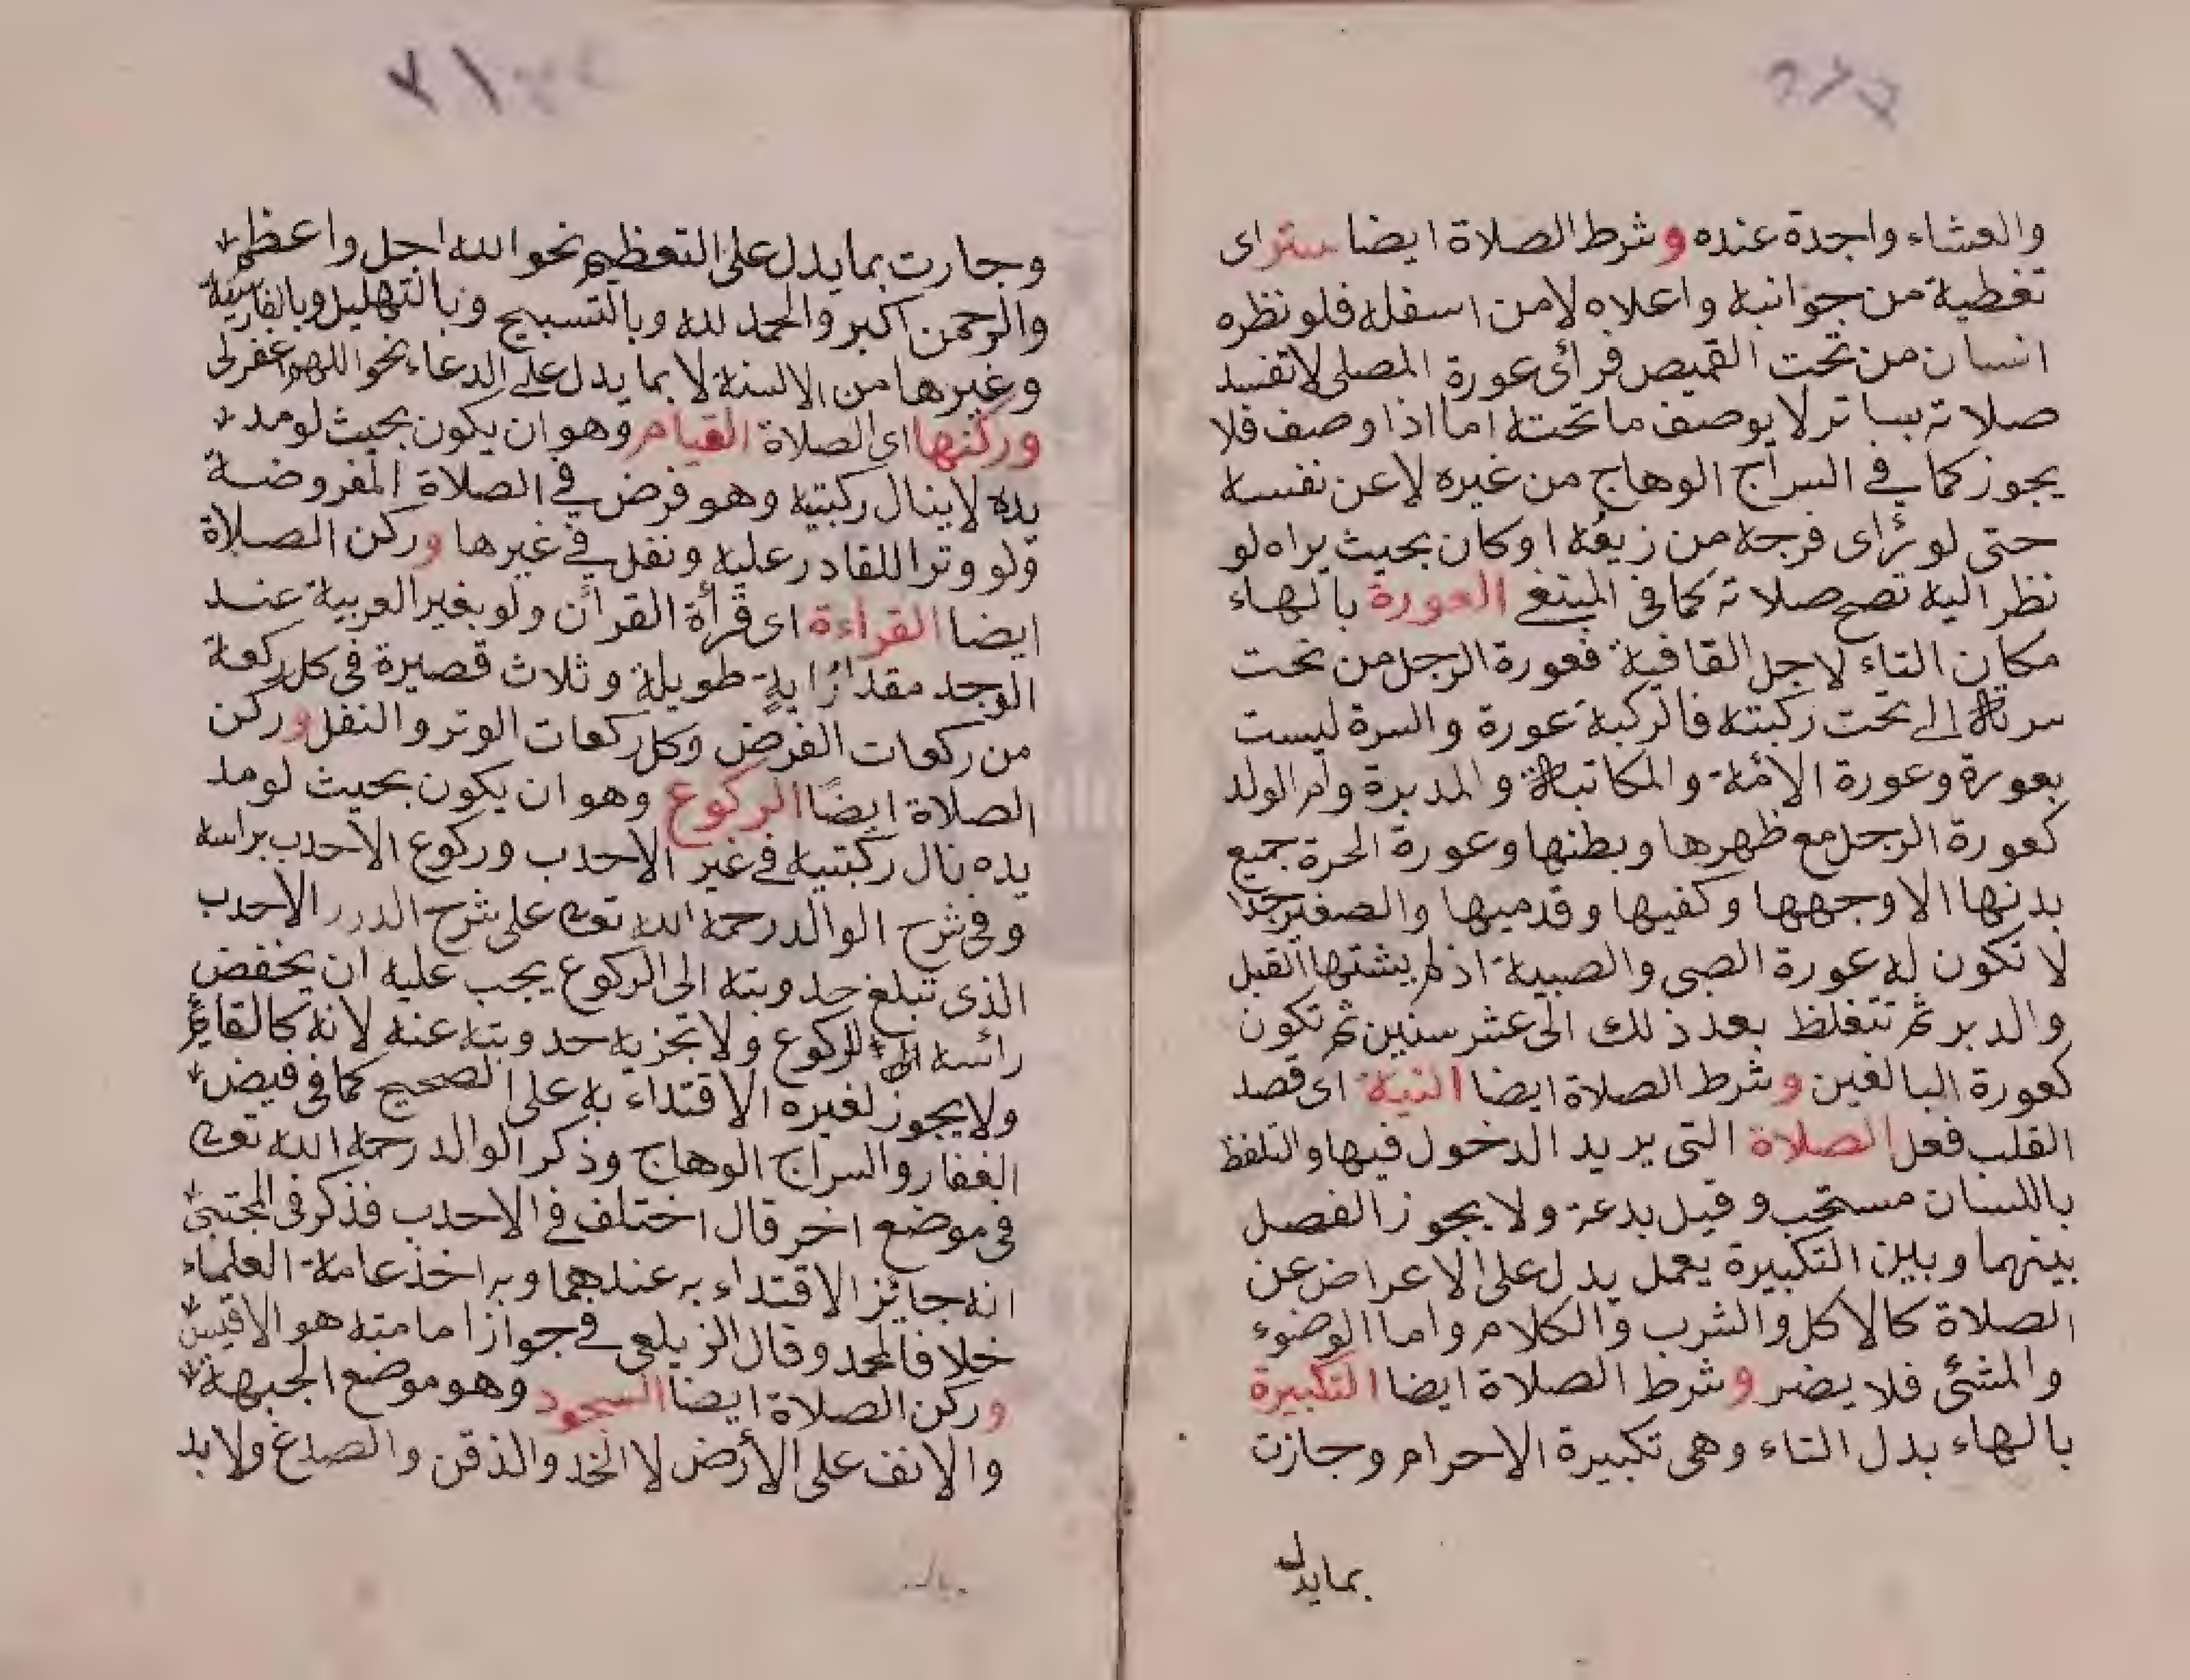 والعشاء واجدة عنده وشرط الصلاة ايضا ستر اى
تغطية من جوانبه واعلاه لا من اسفله فلو نظره
انسان من تحت القميص فرائ عورة المصلى لا تفسد
صلاته بساتر لا يوصف ما تحته اما اذا وصف فلا
يجوز كما في السراج الوهاج من غيره لا عن نفسه
حتى لو رُاى فرجه من زيقه او كان بحيث يراه لو
نظر اليه تصح صلاته كما فى المبتغى العورة بالهاء
مكان التاء لاجل القافية فعورة الرجل من تحت
سرته الى تحت ركبته فالركبة عورة والسرة ليست
بعورة وعورة الامة والمكاتبة والمدبرة وام الولد
كعورة الرجل مع ظهرها وبطنها وعورة الحرة جميع
بدنها الا وجهها وكفيها وقدميها والصغير جدا
لا تكون له عورة الصبى والصبية اذ لم يشتها القبل
والدبر ثم تتغلظ بعد ذلك الى عشر سنين ثم تكون
كعورة البالغين وشرط الصلاة ايضا النية اى قصد
القلب فعل الصلاة التى يريد الدخول فيها والتلفظ
باللسان مستحب وقيل بدعة ولا يجوز الفصل
بينهما وبين التكبيرة بعمل يدل على الاعراض عن
الصلاة كالاكل والشرب والكلام واما الوضوء
والمشئ فلا يضر وشرط الصلاة ايضا التكبيرة
بالهاء بدل التاء وهى تكبيرة الاحرام وجازت
بمايدل
٢١
وجارت بما يدل على التعظيم نحو الله اجل واعظم
والرحمن اكبر والحمد لله وبالتسبيح وبالتهليل وبالفارسية
وغيرها من الالسنة لا بما يدل على الدعاء نحو اللهم اغفر لى
وركنها اى الصلاة القيام وهو ان يكون بحيث لو مد
يده لا ينال ركبتيه وهو فرض في الصلاة المفروضة
ولو وترا للقادر عليه ونفل في غيرها وركن الصلاة
ايضا القراءة اى قرأة القرآن ولو بغير العربية عند
الوجد مقدار اية طويلة وثلاث قصيرة فى كل ركعة
من ركعات الفرض وكل ركعات الوتر والنفل وركن
الصلاة ايضًا الركوع وهو ان يكون بحيث لو مد
يده نال ركبتيه في غير الاحدب وركوع الاحدب براسه
وفى شرح الوالد رحمه الله تعالى على شرح الدرر الاحدب
الذى تبلغ حدوبته الى الركوع يجب عليه ان يخفض
رائسه الى الركوع ولا تجزيه حدوبته عنه لانه كالقائم
ولا يجوز لغيره الاقتداء به على الصحيح كما فى فيض
الغفار والسراج الوهاج وذكر الوالد رحمه الله تعالى
فى موضع اخر قال اختلف في الاحدب فذكر فى المجتبى
انه جائز الاقتداء به عندهما وبه اخذ عامة العلماء
خلافا لمحمد وقال الزيلعى في جواز امامته هو الاقيس
وركن الصلاة ايضا السجود وهو موضع الجبهة
والانف على الأرض لا الخد والذقن والصدغ ولا بد